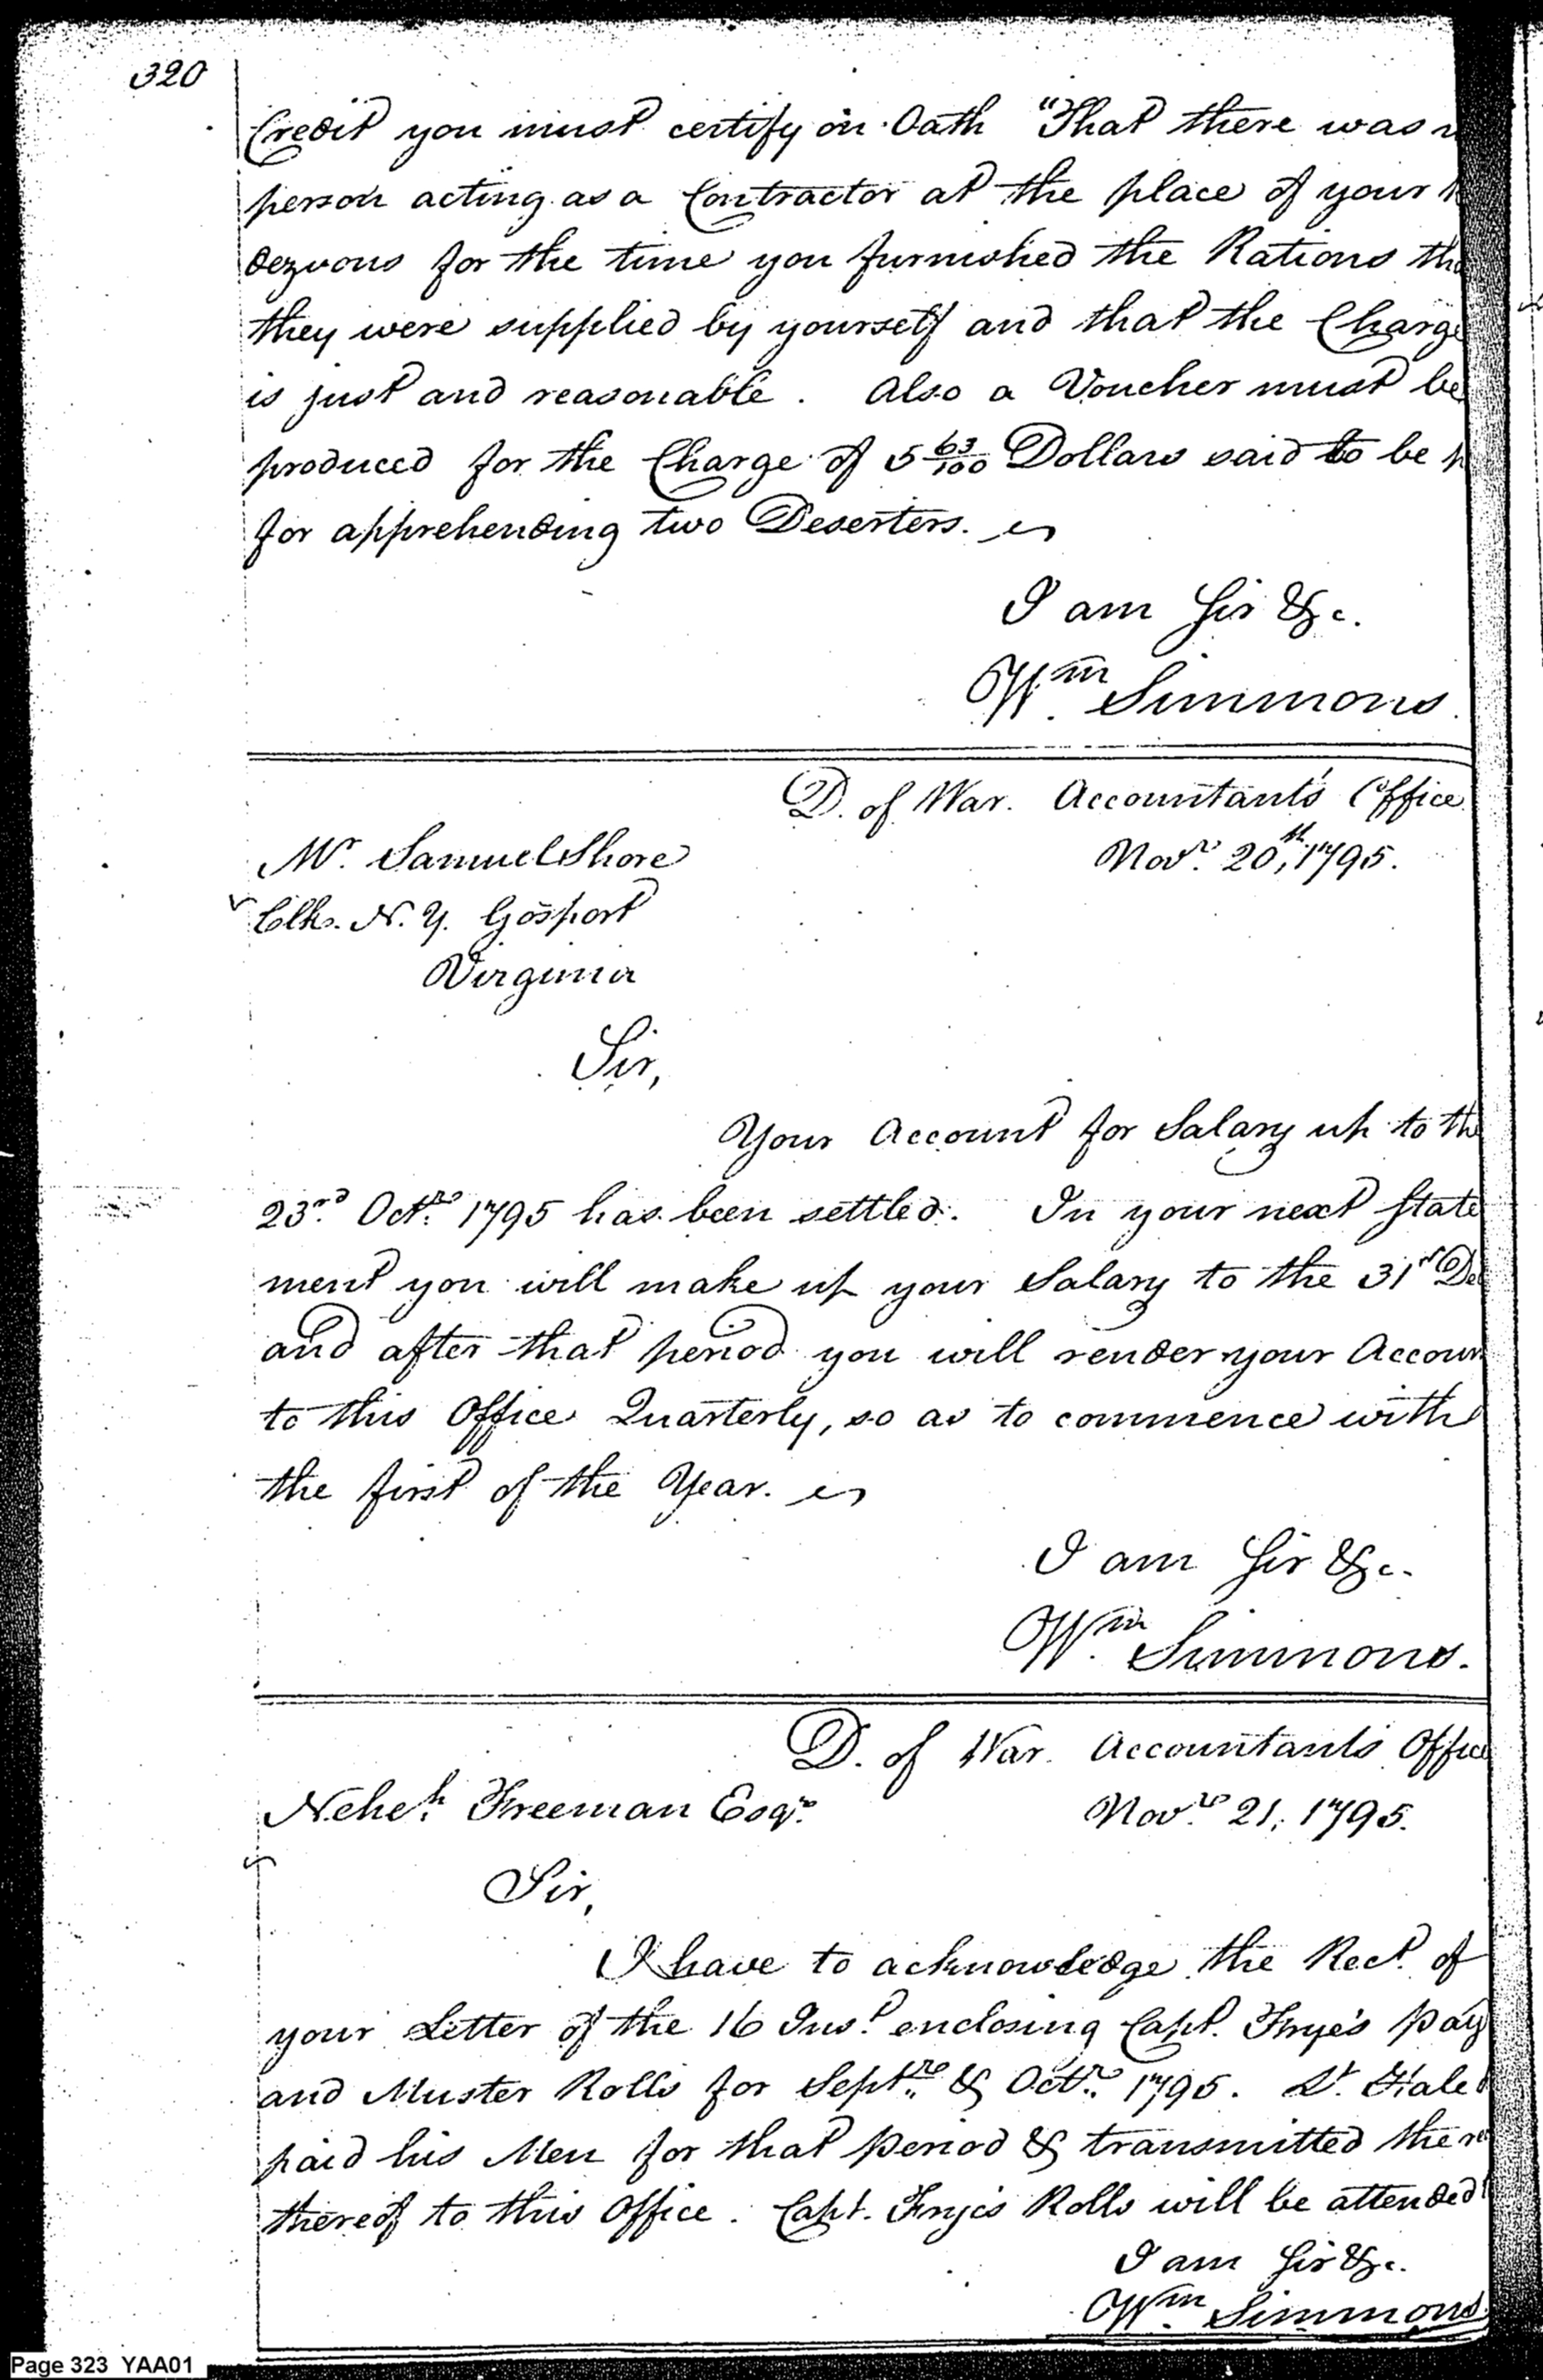 320
Credit you must certify on Oath "That there was
person acting as a Contractor at the place of your
dezvous for the time you furnished the Rations tha
they were supplied by yourself and that the Charge
is just and reasonable. Also a Voucher must be
produced for the Charge of 5 63/100 Dollars said to be
for apprehending two Deserters.
I am Sir &c.
Wm Simmons.
D. of War. Accountant's Office
Novr. 20th, 1795.
Mr. Samuel Shore
Clk. N. Y. Gosport
Virginia
Sir,
Your Account for Salary up to the
23rd Octr. 1795 has been settled. In your next State
ment you will make up your Salary to the 31st De
and after that period you will render your Accoun
to this Office Quarterly, so as to commence with
the first of the Year.
I am Sir &c.
Wm Simmons.
D. of War. Accountants Office
Neheh. Freeman Esqr.
Novr. 21, 1795.
Sir,
I have to acknowledge the Rect. of
your Letter of the 16 Inst. enclosing Capt. Frye's pay
and Muster Rolls for Septr. & Octr. 1795. Lt. Hale
paid his Men for that period & transmitted the
thereof to this Office. Capt. Frye's Rolls will be attended
I am Sir &c.
Wm Simmons
Page 323 YAA01